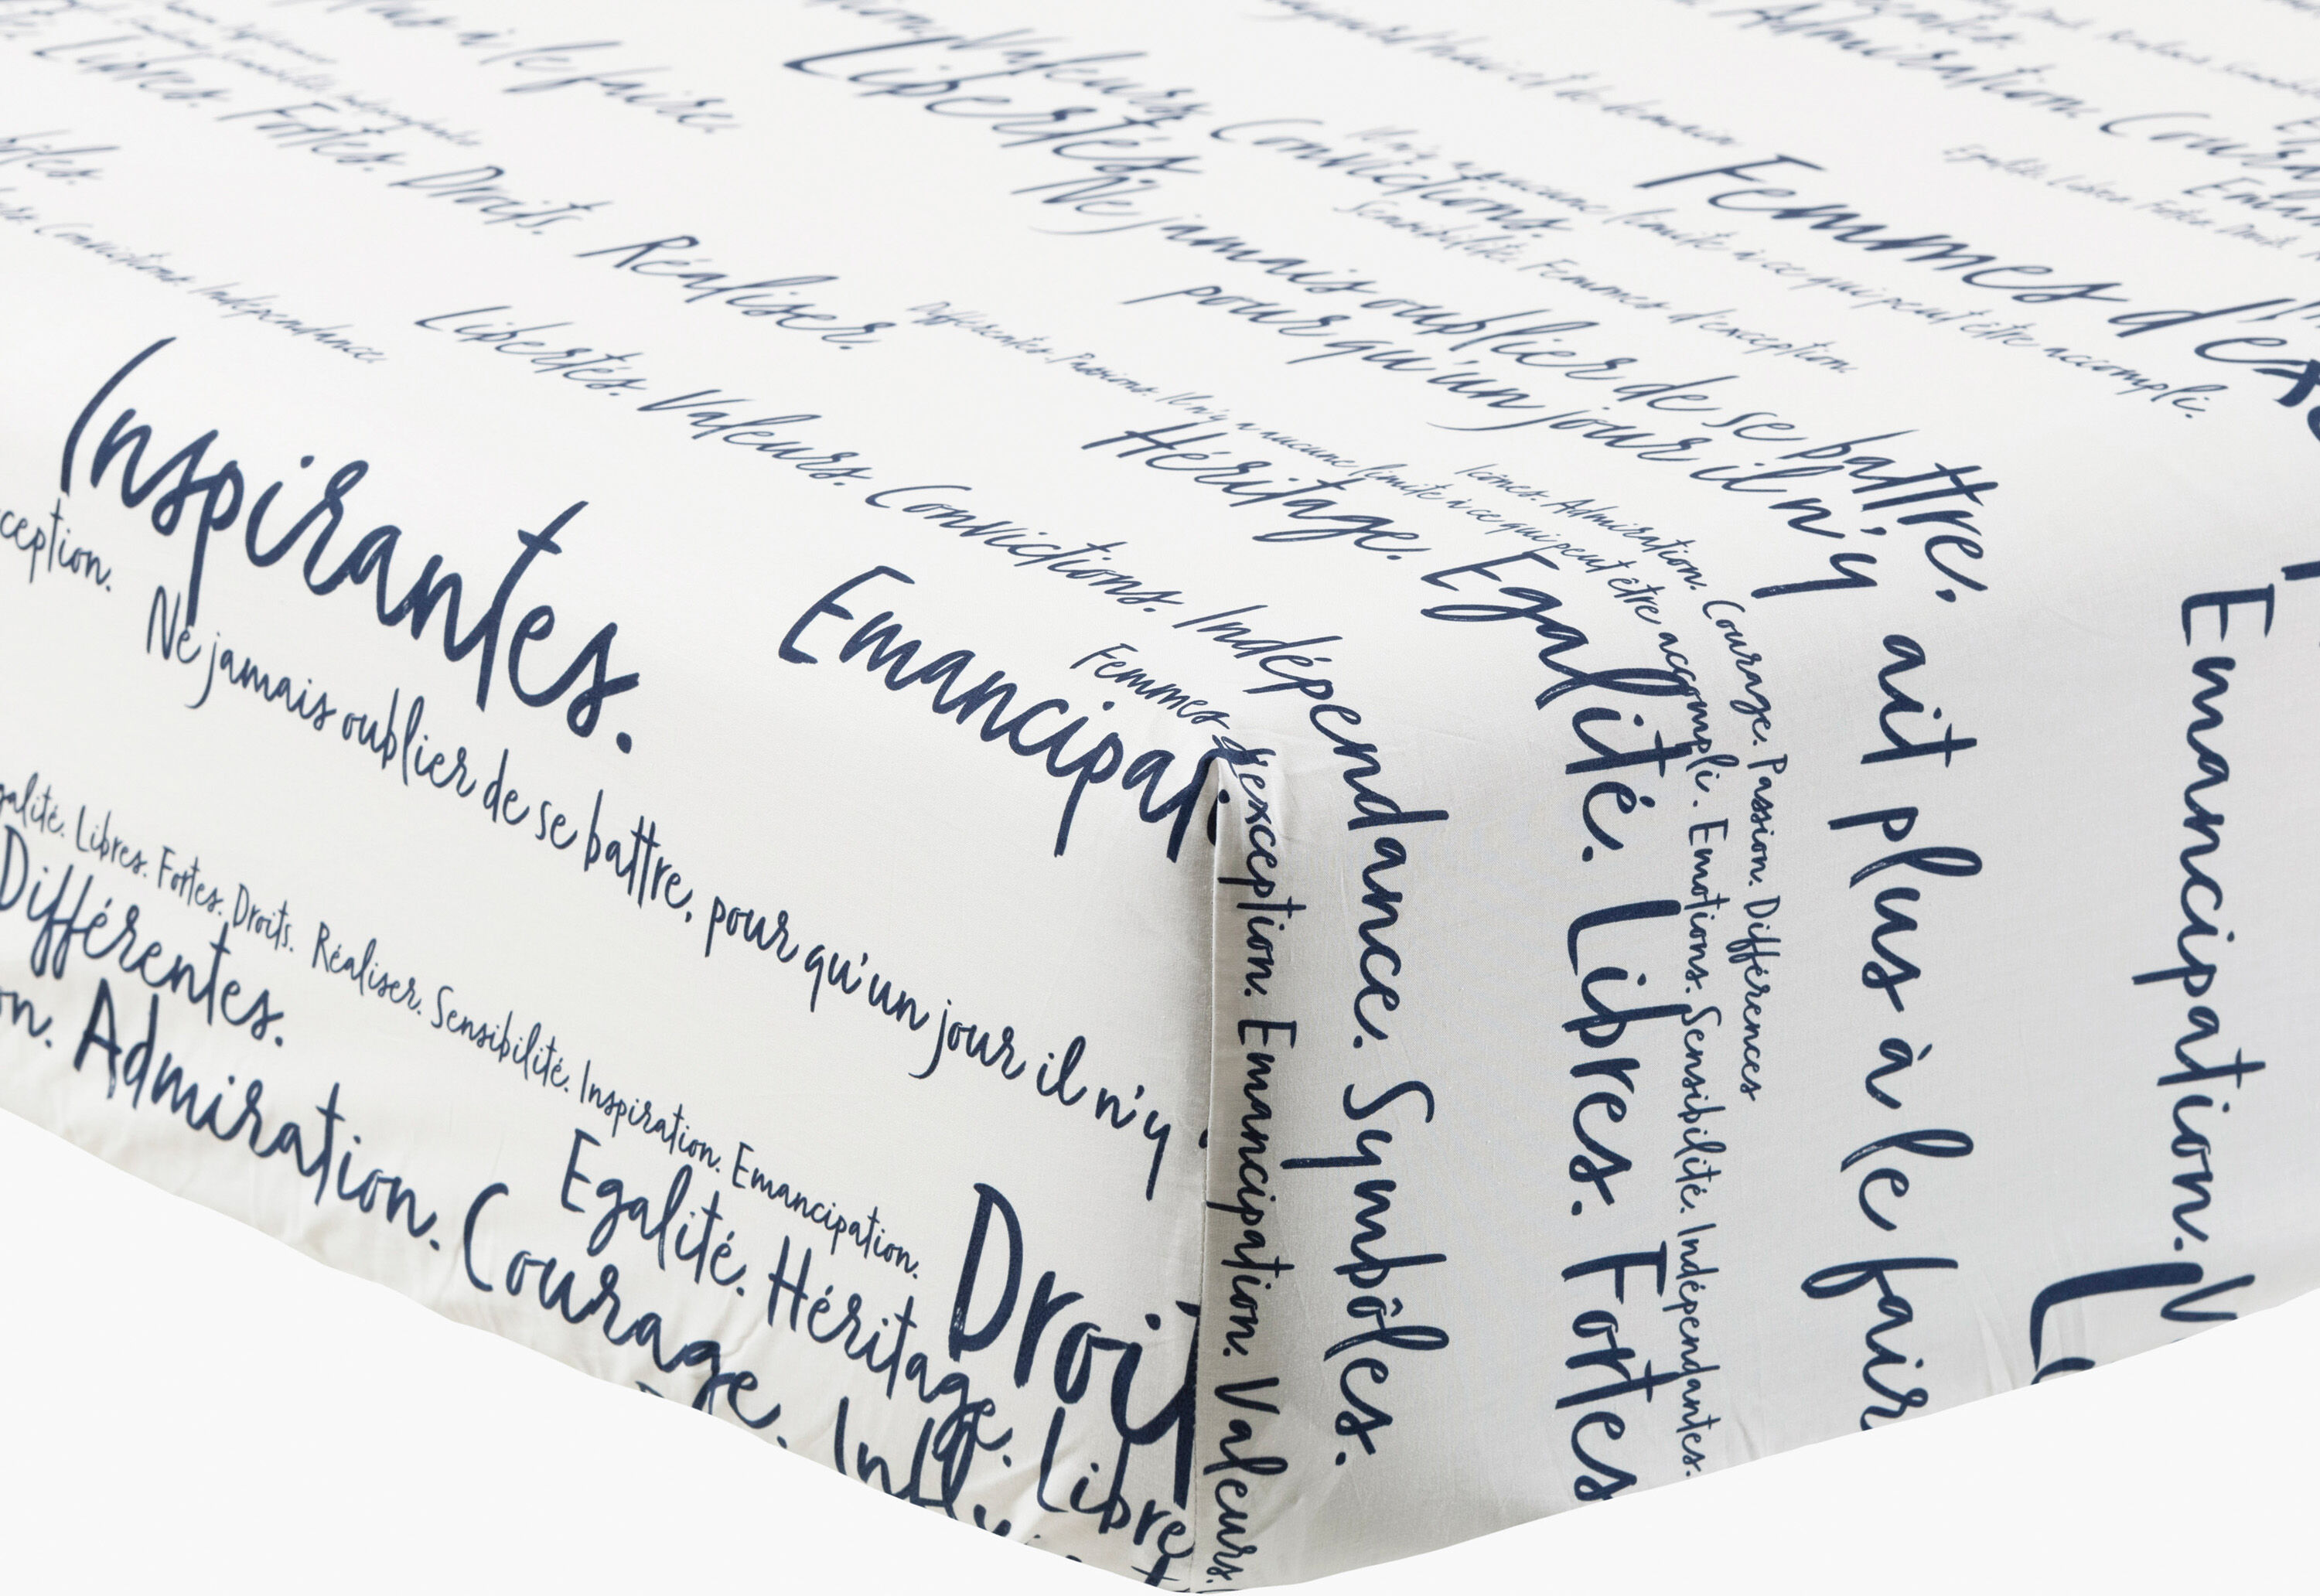 à le faire.
Libres. Fortes. Droits. Réaliser.
Convictions. Indépendance.
Valeurs.
Libertés. Convictions.
Sensibilité. Femmes d'exception.
Il n'y a aucune limite à ce qui peut être accompli.
Femmes d'ex
Admiration. Cour
Ne jamais oublier de se battre,
pour qu'un jour il n'y ait plus à le fair
Libertés. Valeurs. Convictions. Indépendance. Symbôles.
Différentes. Passions. Il n'y a aucune limite à ce qui peut être accompli. Emotions. Sensibilité. Indépendantes.
Icônes. Admiration. Courage. Passion. Différences
Héritage. Egalité. Libres. Fortes
Emancipation.
Inspirantes.
Emancipat
Femmes d'exception. Emancipation. Valeurs.
ception.
Ne jamais oublier de se battre, pour qu'un jour il n'y
galité. Libres. Fortes. Droits. Réaliser. Sensibilité. Inspiration. Emancipation.
Différentes.
Egalité. Héritage. Libre
on. Admiration. Courage. Infl
Droi